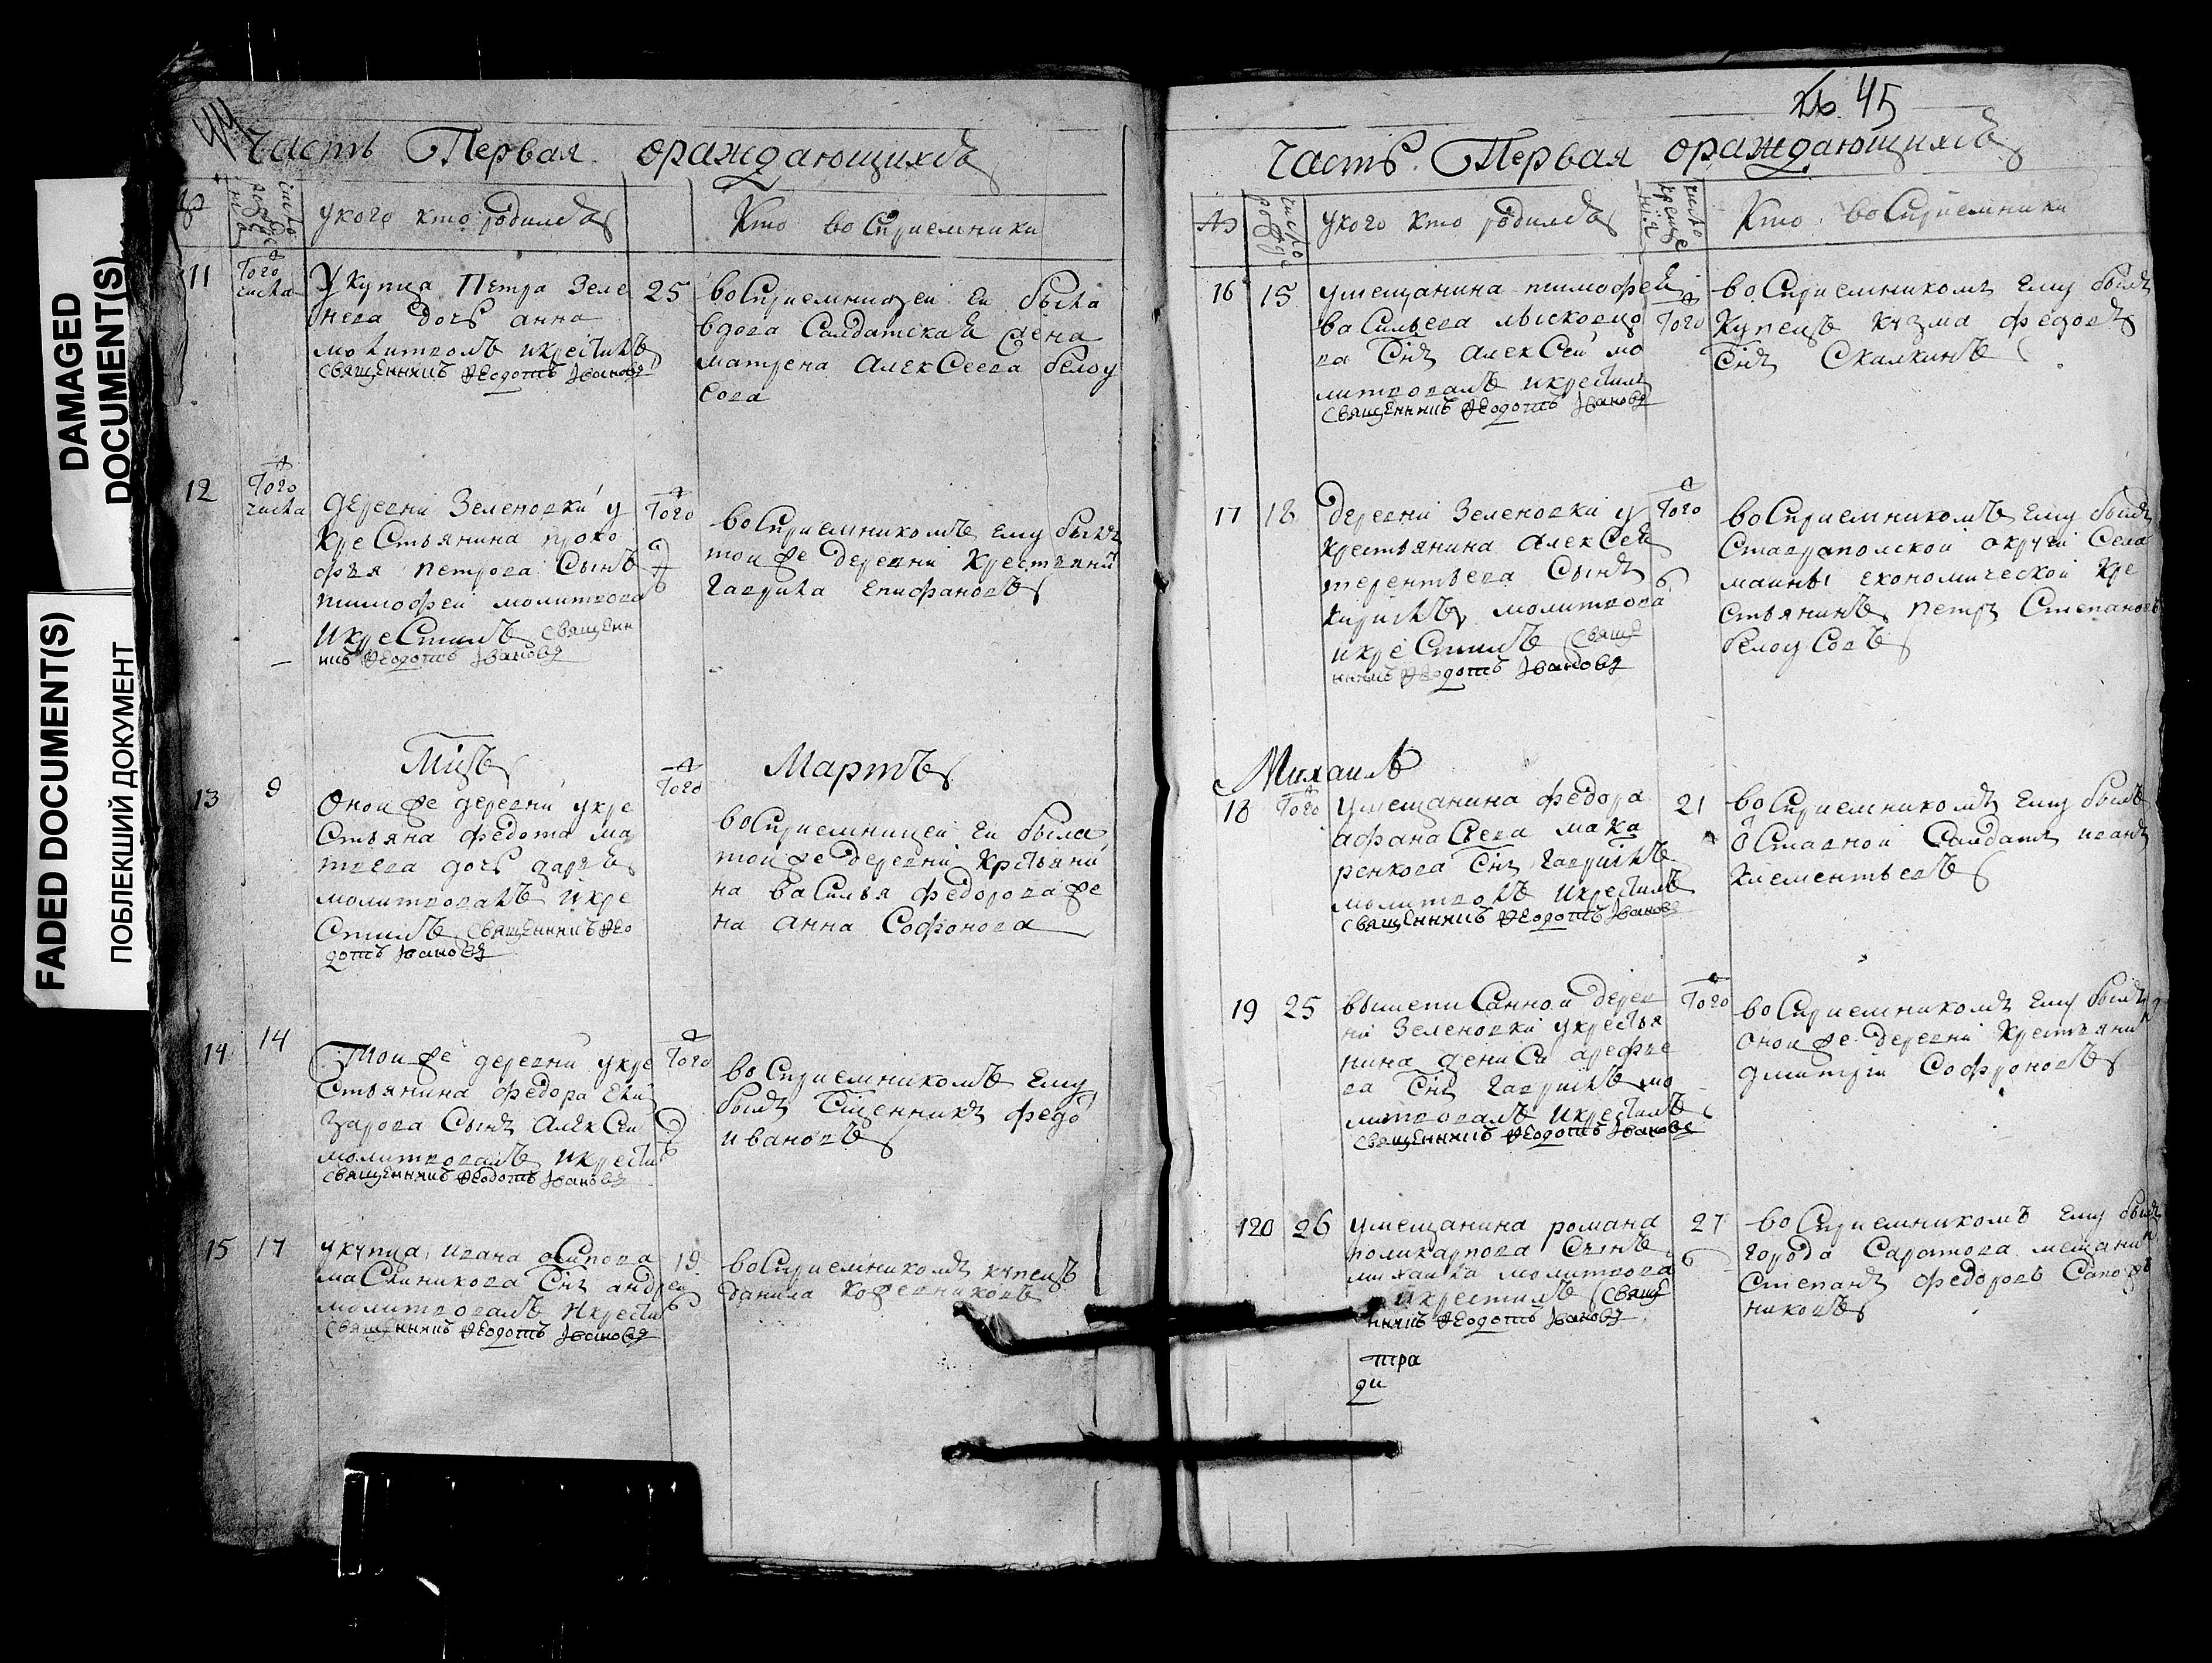 DAMAGED
DOCUMENT(S)
FADED DOCUMENT(S)
ПОБЛЕКШИЙ ДОКУМЕНТ
44
Часть Первая ораждающихся
№
число рожде
укого кто родился
Кто восприемники
11
Того
числа
У купца Петра Зеле
нева дочь анна
молитвовалъ икрестилъ
священникъ Ѳеодотъ Iвановъ
25
восприемницей ей была
вдова Салдатская жена
матрена Алексеева белоу
сова
12
Того
числа
деревни Зеленовки у
крестьянина проко
фья петрова Сынъ
тимофеи молитвова
икрестилъ священ
никъ Ѳеодотъ Iвановъ
Того
восприемникомъ ему былъ
тои же деревни крестянинъ
гаврила епифановъ
Мцъ
Мартъ
13
9
Онои же деревни укре
стьяна федота ма
твева дочь дарья
молитвовалъ икре
стилъ священникъ Ѳео
дотъ Iвановъ
Того
восприемницеи еи была
тои же деревни крстьяни
на василья федорова же
на анна Софонова
14
14
Тои же деревни укре
стьянина федора ели
зарова сынъ алексеи
молитвовалъ икрести
священникъ Ѳеодотъ Iвановъ
Того
восприемникомъ ему
былъ Сщенникъ федо
ивановъ
15
17
укупца ивана осипова
масленикова Снъ андреи
молитвовалъ икрести
священникъ Ѳеодотъ Iвановъ
19
восприемникомъ купецъ
данила кожевниковъ
45
Часть Первая ораждающихся
№
число рожде
укого кто родился
число креще
нія
Кто восприемники
16
15
умещанина тимофея
васильева лысковцо
ва Снъ алексеи мо
литвовалъ икрестилъ
священникъ Ѳеодотъ Iвановъ
Того
восприемникомъ ему былъ
купецъ кузма федоровъ
Снъ Скалкинъ
17
18
деревни Зеленовки у
крестьянина алексея
терентьева Сынъ
кирилъ молитвова
икрестилъ свяще
нникъ Ѳеодотъ Iвановъ
Того
восприемникомъ ему былъ
ставрапольскои округи села
маины економическои кре
стьянинъ петръ Степановъ
белоусовъ
Михаилъ
18
Того
умещанина федора
афанасьева мака
ренкова Снъ гаврилъ
молитвовалъ икрестилъ
священникъ Ѳеодотъ Iвановъ
21
восприемникомъ ему былъ
оставнои салдатъ иванъ
клементьевъ
19
25
вышеписаннои дерев
ни Зеленовки укрестья
нина дениса арефье
ва Снъ гаврилъ мо
литвовалъ икрестилъ
священникъ Ѳеодотъ Iвановъ
Того
восприемникомъ ему былъ
онои же деревни крестьянин
дмитри Софроновъ
120
26
умещанина романа
поликарпова Сынъ
михаила молитвова
икрестилъ священ
никъ Ѳеодотъ Iвановъ
27
восприемникомъ ему былъ
города Саратова мещанин
Степанъ федоровъ Сапож
никовъ
тра
ди